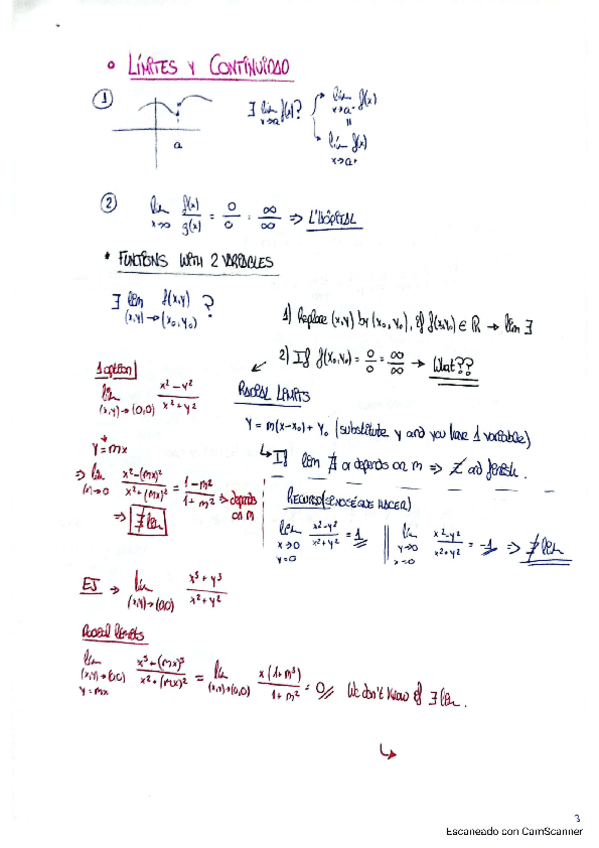 • LÍMITES Y CONTINUIDAD
① a ∃ lim x→a f(x)? lim x→a⁻ f(x)
=
lim x→a⁺ f(x)
② lim x→∞ f(x)/g(x) = 0/0 = ∞/∞ ⇒ L'HÔPITAL
• FUNCTIONS WITH 2 VARIABLES
∃ lim (x,y)→(x₀,y₀) f(x,y) ?
1) Replace (x,y) by (x₀,y₀), if f(x₀,y₀) ∈ ℝ → lim ∃
2) If f(x₀,y₀) = 0/0 = ∞/∞ → What??
1 option
lim (x,y)→(0,0) x²-y²/x²+y²
y=mx
⇒ lim x→0 x²-(mx)²/x²+(mx)² = 1-m²/1+m² ⇒ depends on m
⇒ ∄ lim
RADIAL LIMITS
y = m(x-x₀)+y₀ (substitute y and you have 1 variable)
↳ If lim ∄ or depends on m ⇒ ∄ and finish.
RECURSO (SI NO SÉ QUE HACER)
lim x→0 y=0 x²-y²/x²+y² = 1 || lim y→0 x=0 x²-y²/x²+y² = -1 ⇒ ∄ lim
EJ → lim (x,y)→(0,0) x³+y³/x²+y²
Radial limits
lim (x,y)→(0,0) y=mx x³+(mx)³/x²+(mx)² = lim (x,y)→(0,0) x(1+m³)/1+m² = 0 We don't know if ∃ lim.
↳
3
Escaneado con CamScanner